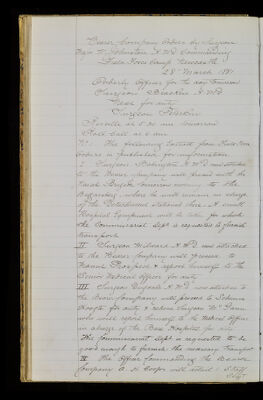 Bearer Company Orders by Surgeon
Major Johnston A.M.D. Commanding
Field Force Camp Newcastle
28th March 1881
Orderly Officer for the day Tomorrow
Surgeon A.M.D.
Next for duty
Surgeon
Reveille at 5.30 am tomorrow
Roll Call at 6 am
The following Extract from Field Force
Orders is published for information
I Surgeon A.M.D. now attached
to the Bearer Company will proceed with the
Naval Brigade tomorrow morning to the
where he will remain in charge
of the Detachment stationed there. A small
Hospital Equipment will be taken for which
the Commissariat Dept is requested to furnish
transport
II Surgeon A.M.D. now attached
to the Bearer Company will proceed to
Mount Prospect & report himself to the
Senior Medical Officer for duty
III Surgeon A.M.D. now attached to
the Bearer Company will proceed to
for duty & relieve Surgeon
who will report himself to the Medical Officer
in charge of the Base Hospital for duty
The Commissariat Dept is requested to be
good enough to furnish the necessary Transport
IV The Officer Commanding the Bearer
Company A. H. Corps will detail 1 Staff
Sergt